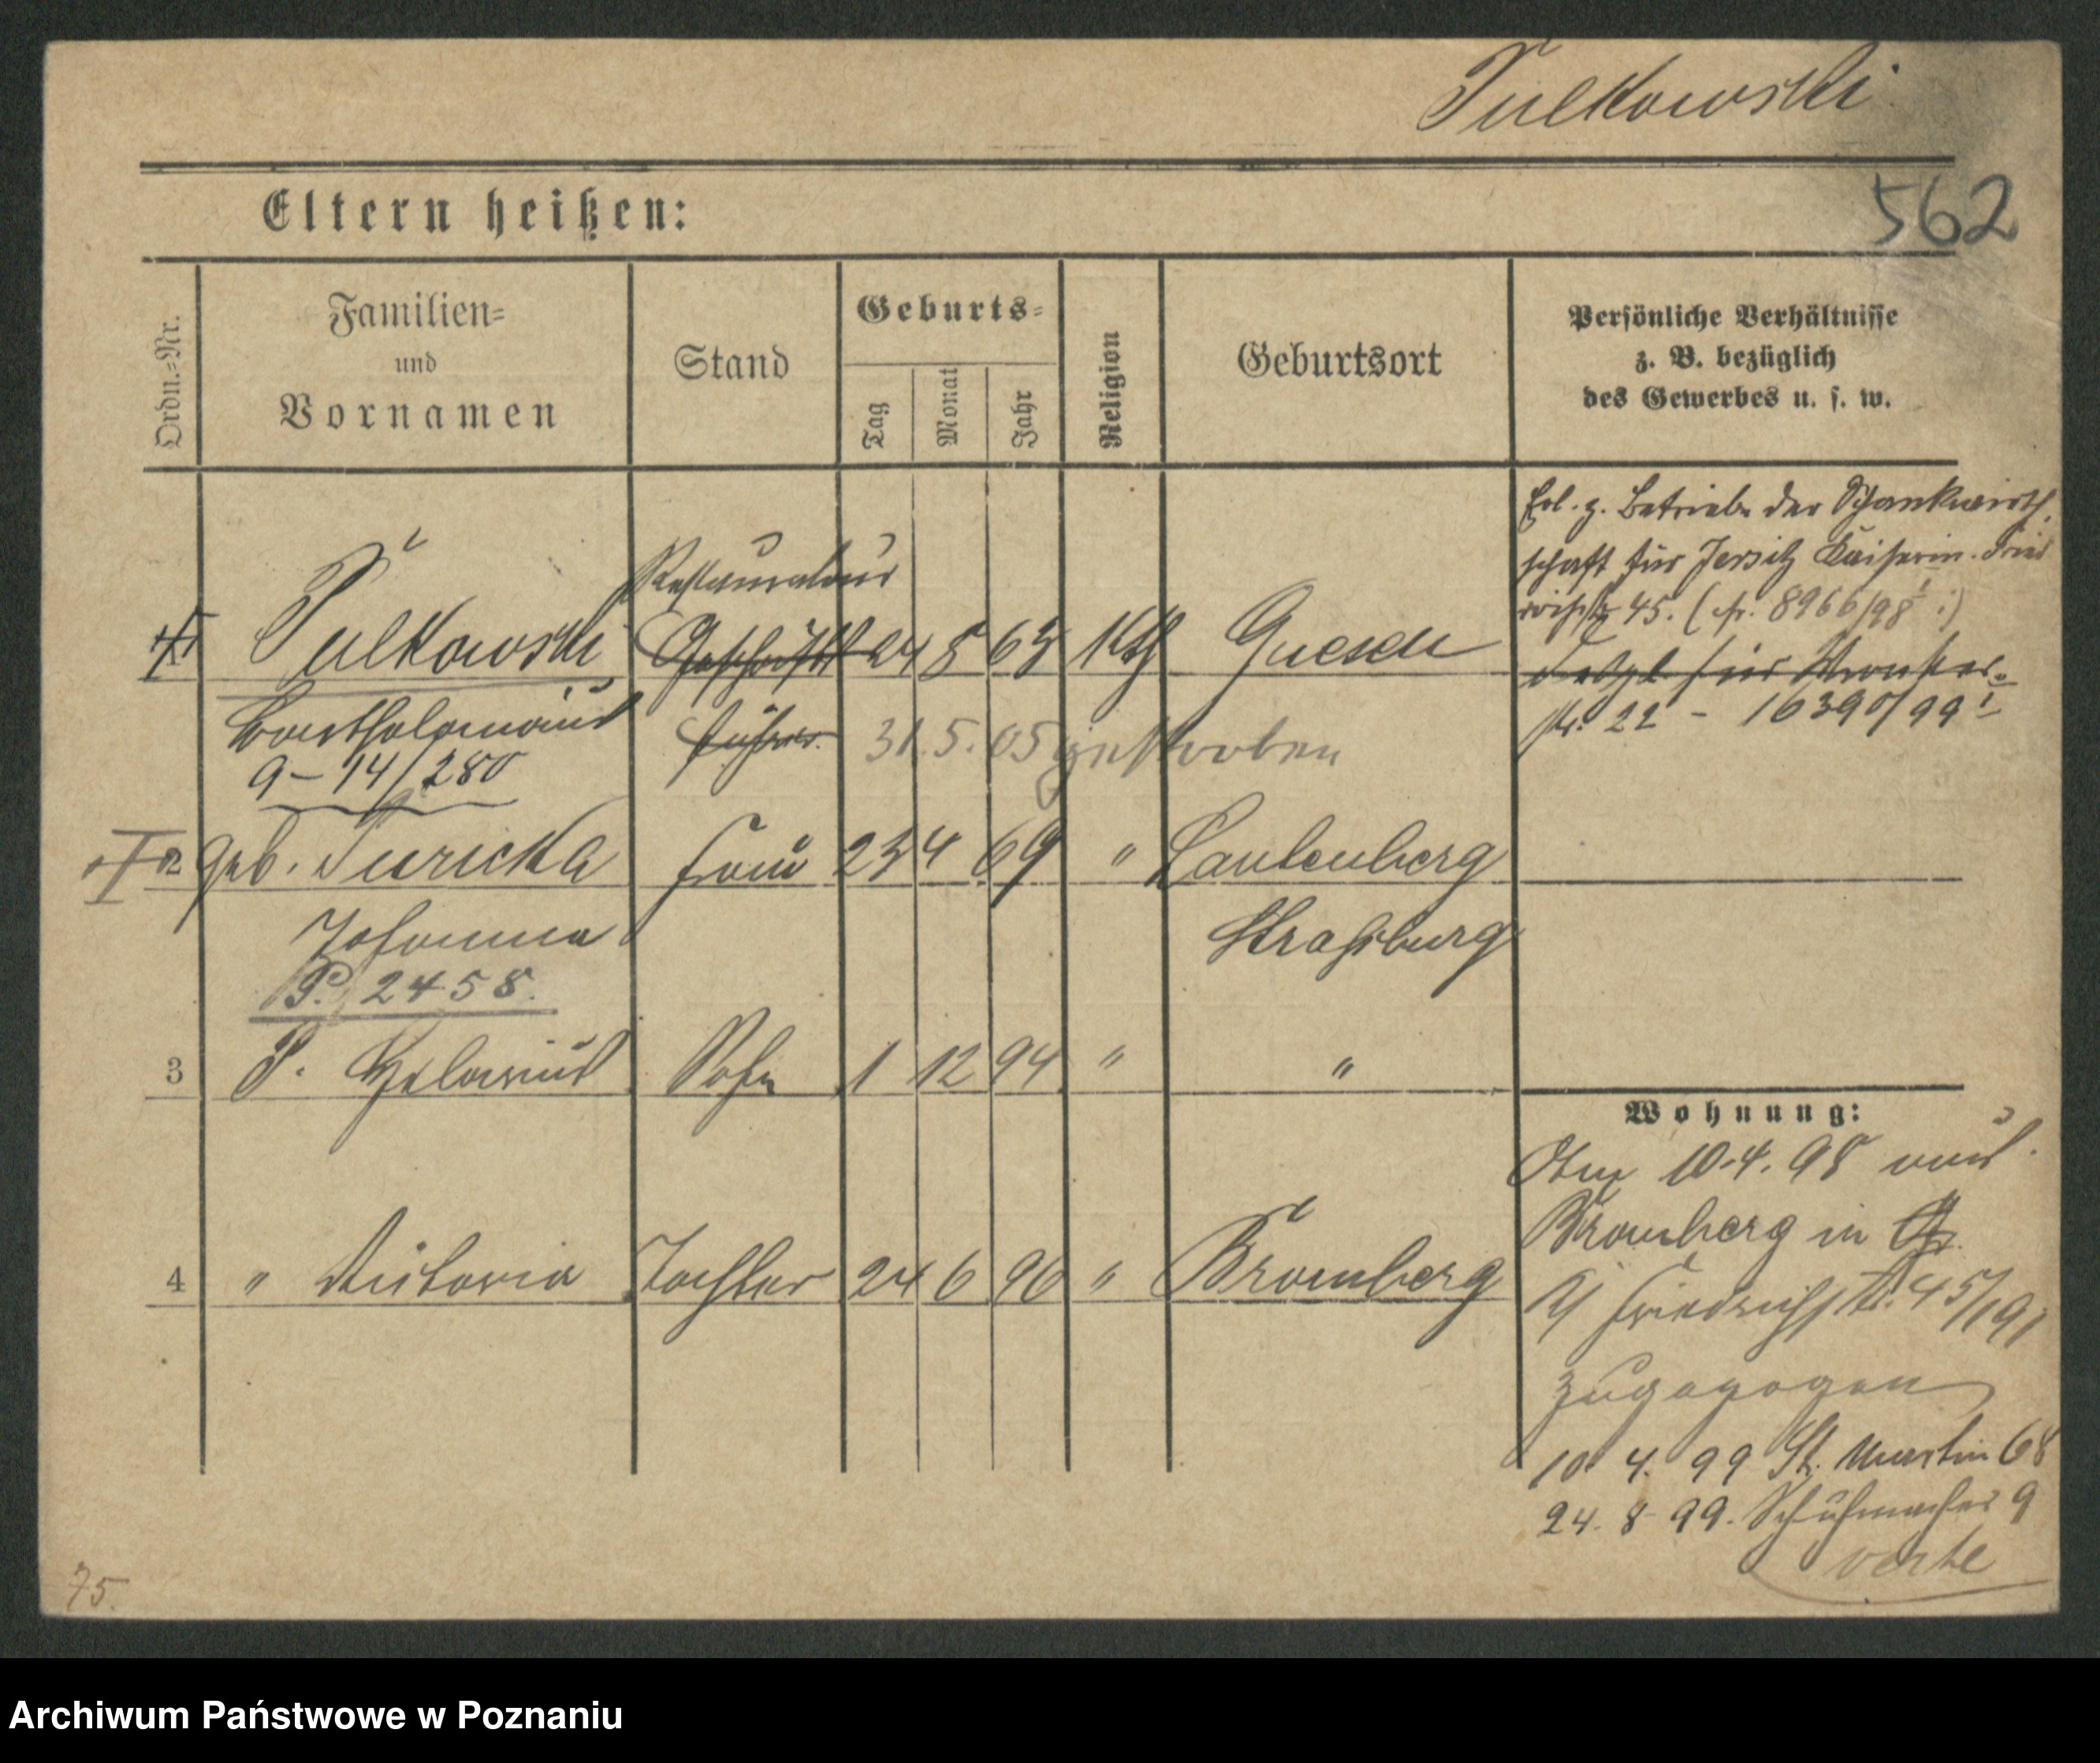 Pulkowski
562
Eltern heißen:
Ordn.-Nr.
Familien-
und
Vornamen
Stand
Geburts-
Tag
Monat
Jahr
Religion
Geburtsort
Persönliche Verhältnisse
z. B. bezüglich
des Gewerbes u. s. w.
Erl. z. Betriebe der Schankwirth
schaft für Jersitz Kaiserin. Fried
45. ( 8966/98 :)
Restaurateur
1 Pulkowski Geschäfts 24 8 63 Kth Gnesen
Bartholomäus führer 31.5.05 gestorben
22 - 16390/99
9-14/280
2 geb. Turicka Frau 23 4 69 " Lautenberg
Johanna Straßburg
P. 2458.
3 P. Hylarius Sohn 1 12 94 " "
Wohnung:
10.4.98 aus
Bromberg in
4 " Victoria Tochter 24 6 96 " Bromberg
Friedrichstr. 45/191
zugezogen
10. 4. 99 St. Martin 68
24. 8 99. Schuhmacher 9
verte
75.
Archiwum Państwowe w Poznaniu